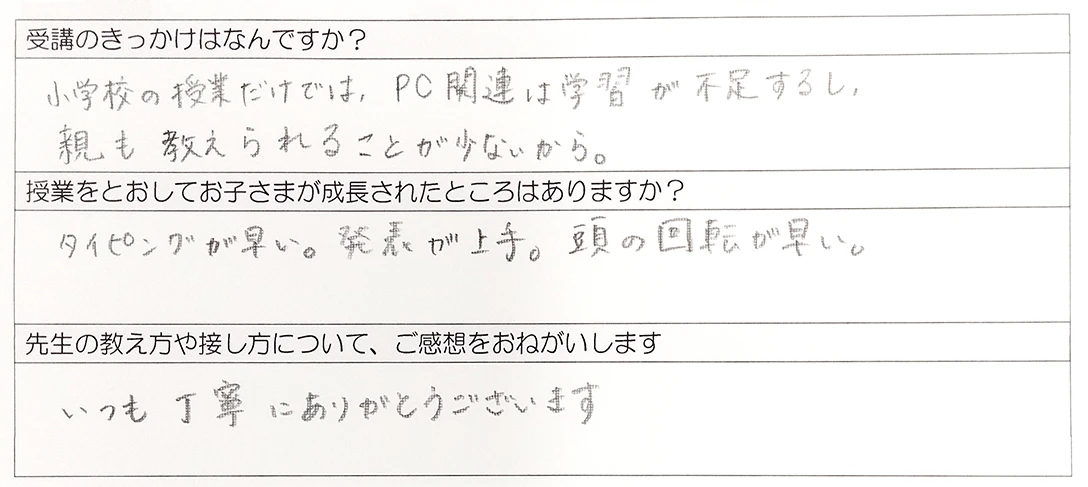 受講のきっかけはなんですか？
小学校の授業だけでは、PC関連は学習が不足するし、
親も教えられることが少ないから。
授業をとおしてお子さまが成長されたところはありますか？
タイピングが早い。発表が上手。頭の回転が早い。
先生の教え方や接し方について、ご感想をおねがいします
いつも丁寧にありがとうございます